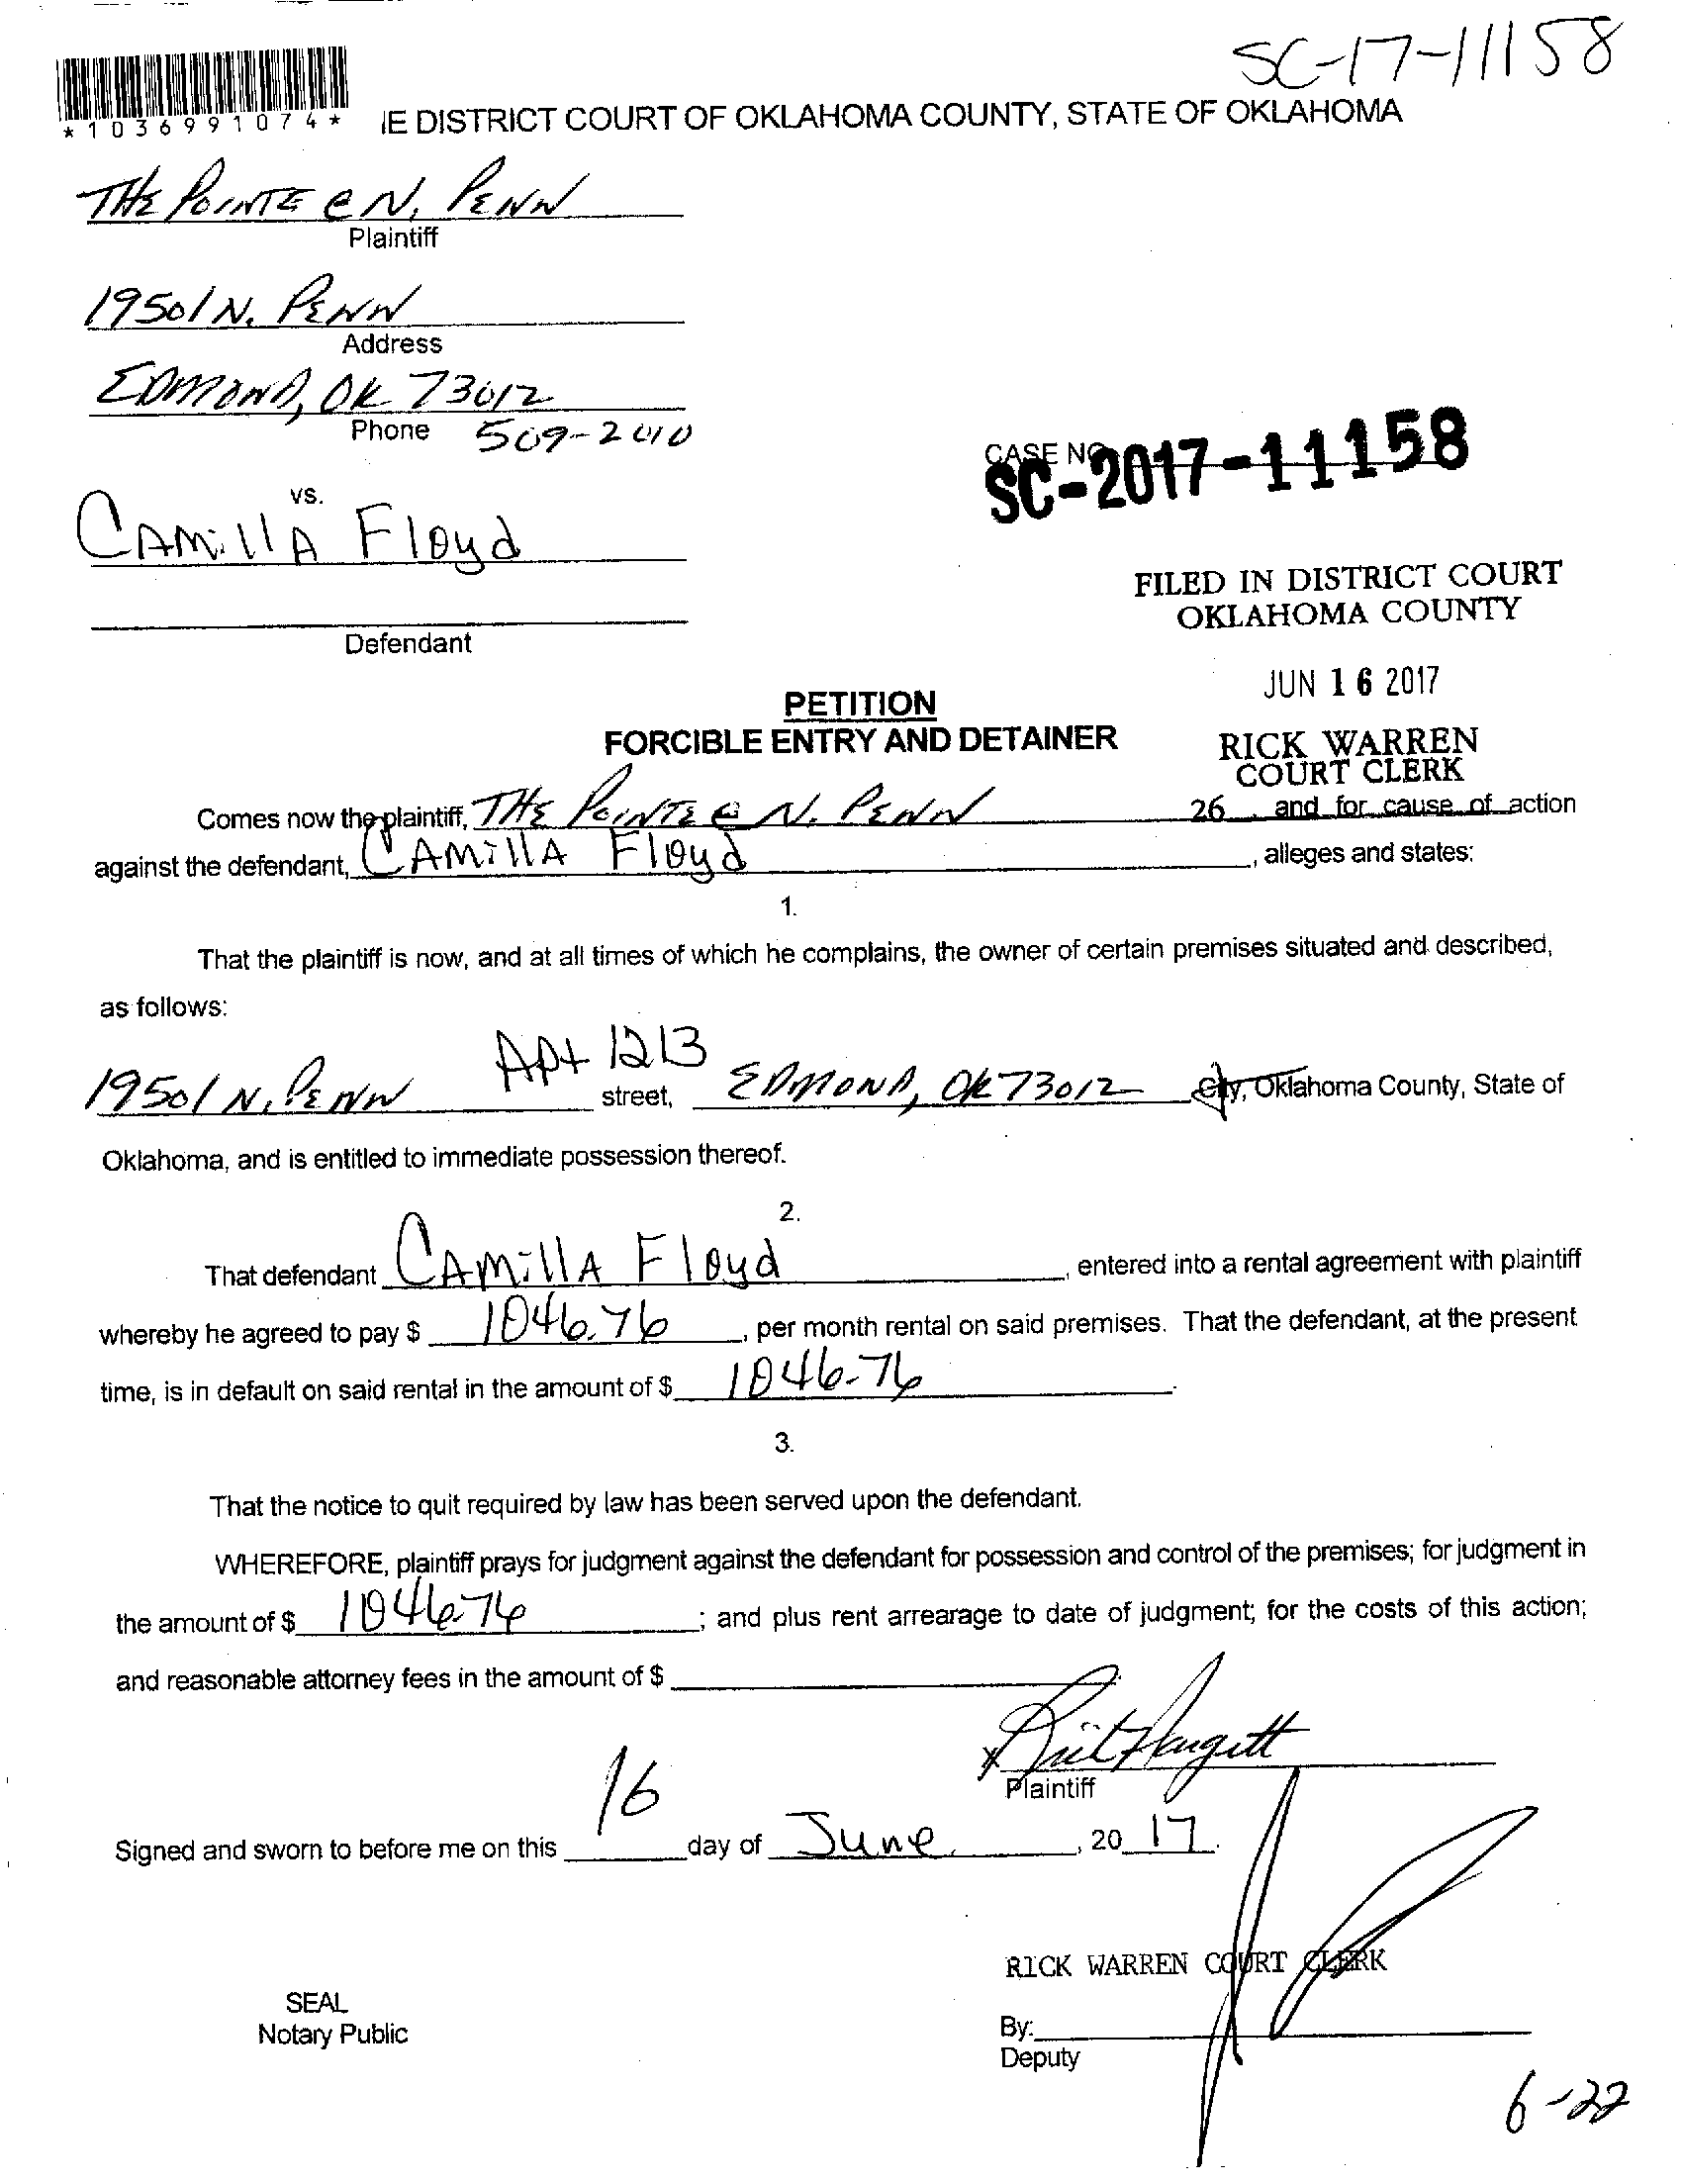 SC-17-11158
*1036991074*
IE DISTRICT COURT OF OKLAHOMA COUNTY, STATE OF OKLAHOMA
THE POINTE @ N. PENN
Plaintiff
19501 N. PENN
Address
EDMOND, OK 73012
Phone 509-2010
CASE NO.
SC-2017-11158
vs.
CAMillA Floyd
Defendant
FILED IN DISTRICT COURT
OKLAHOMA COUNTY
JUN 16 2017
RICK WARREN
COURT CLERK
PETITION
FORCIBLE ENTRY AND DETAINER
26
Comes now the plaintiff, THE POINTE @ N. PENN and for cause of action
against the defendant, CAMillA Floyd, alleges and states:
1.
That the plaintiff is now, and at all times of which he complains, the owner of certain premises situated and described,
as follows:
19501 N. PENN Apt 1213 street, EDMOND, OK 73012 City, Oklahoma County, State of
Oklahoma, and is entitled to immediate possession thereof.
2.
That defendant CAMillA Floyd, entered into a rental agreement with plaintiff
whereby he agreed to pay $ 1046.76, per month rental on said premises. That the defendant, at the present
time, is in default on said rental in the amount of $ 1046.76.
3.
That the notice to quit required by law has been served upon the defendant.
WHEREFORE, plaintiff prays for judgment against the defendant for possession and control of the premises; for judgment in
the amount of $ 1046.76; and plus rent arrearage to date of judgment; for the costs of this action;
and reasonable attorney fees in the amount of $
x
Plaintiff
Signed and sworn to before me on this 16 day of June, 20 17.
RICK WARREN COURT CLERK
SEAL
Notary Public
By:
Deputy
6-22